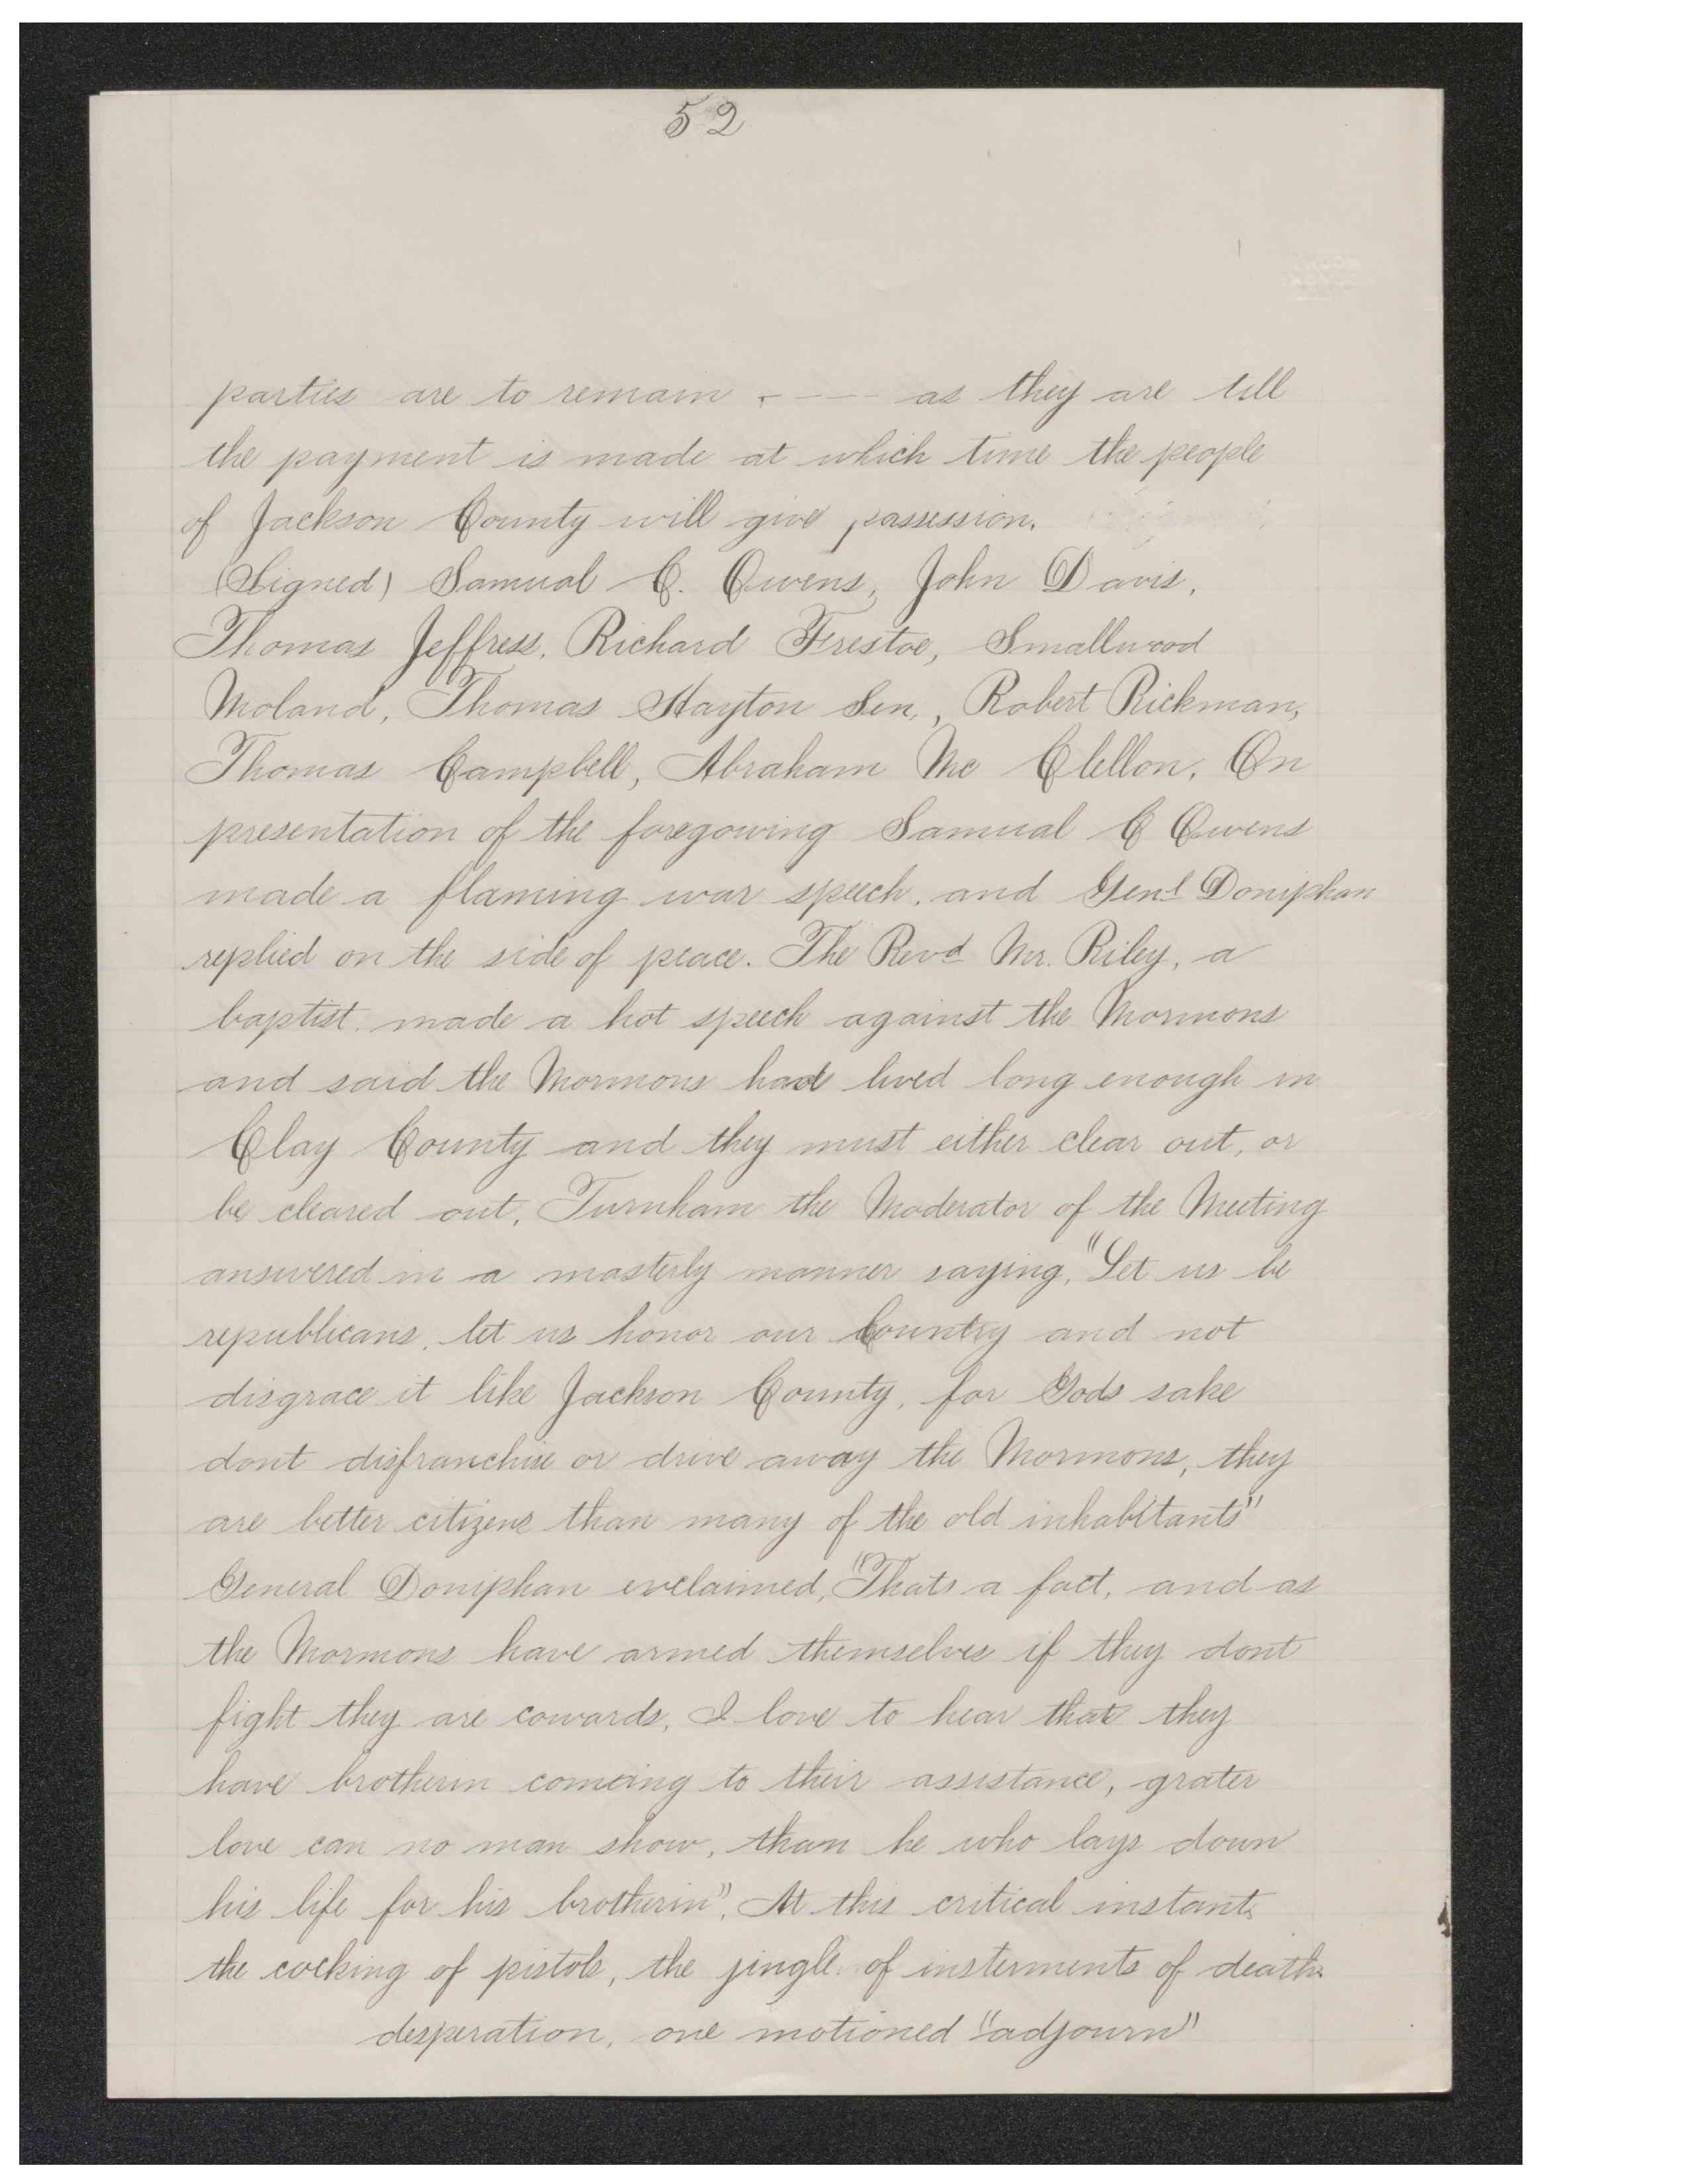 52
parties are to remain - - - - as they are till
the payment is made at which time the people
of Jackson County will give possession.
(Signed) Samual C. Owens, John Davis,
Thomas Jeffress, Richard Frestoe, Smallwood
Moland, Thomas Hayton Sen., Robert Rickman,
Thomas Campbell, Abraham Mc Clellon. On
presentation of the foregowing Samual C Owens
made a flaming war speech, and Genl Doniphan
replied on the side of peace. The Revd Mr. Riley, a
baptist, made a hot speech against the Mormons
and said the Mormons had lived long enough in
Clay County and they must either clear out, or
be cleared out, Turnham the Moderator of the Meeting
answered in a masterly manner saying, "Let us be
republicans, let us honor our Country and not
disgrace it like Jackson County, for Gods sake
dont disfranchise or drive away the Mormons, they
are better citizens than many of the old inhabitants"
General Doniphan exclaimed, "Thats a fact, and as
the Mormons have armed themselves if they dont
fight they are cowards, I love to hear that they
have brotherin comeing to their assistance, grater
love can no man show, than he who lays down
his life for his brotherin". At this critical instant,
the cocking of pistols, the jingle of insterments of death
desperation, one motioned "adjourn"